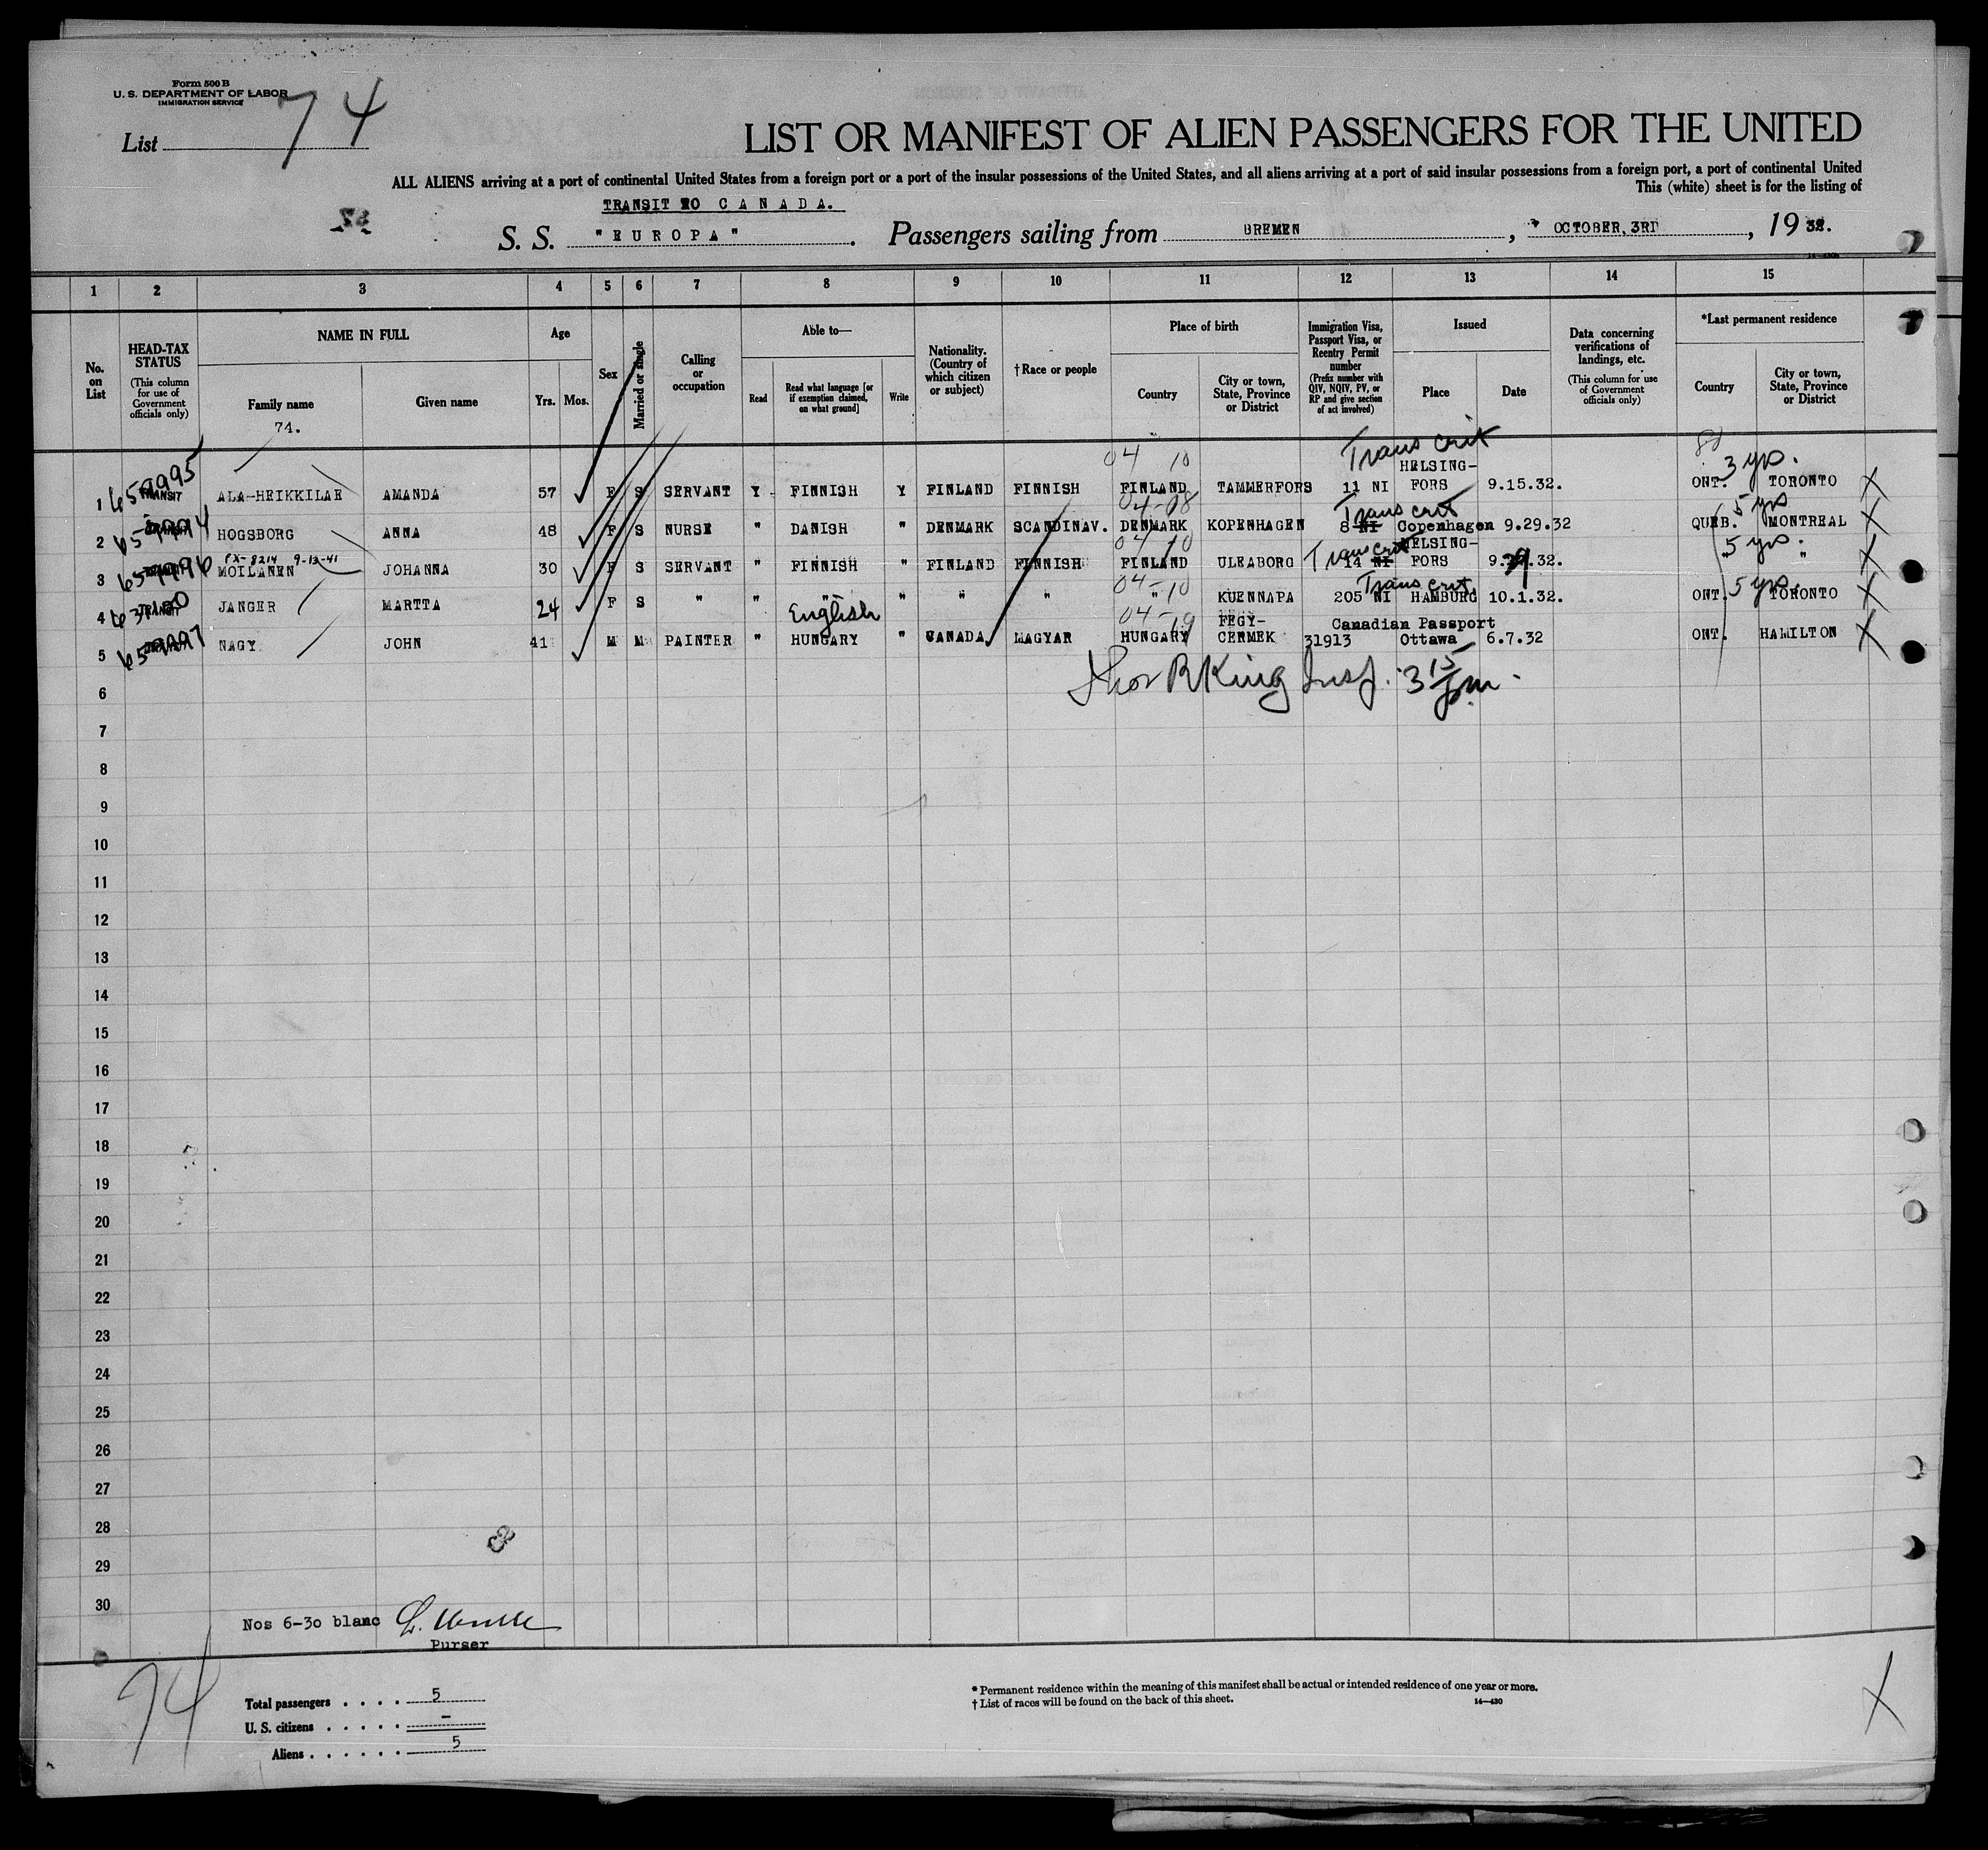 Form 500 B
U. S. DEPARTMENT OF LABOR
IMMIGRATION SERVICE
List 74
LIST OR MANIFEST OF ALIEN PASSENGERS FOR THE UNITED
ALL ALIENS arriving at a port of continental United States from a foreign port or a port of the insular possessions of the United States, and all aliens arriving at a port of said insular possessions from a foreign port, a port of continental United
This (white) sheet is for the listing of
TRANSIT TO CANADA.
S. S. "EUROPA". Passengers sailing from BREMEN, OCTOBER, 3RD, 19 32.
14-430b
1 2 3 4 5 6 7 8 9 10 11 12 13 14 15
No. on List
HEAD-TAX STATUS (This column for use of Government officials only)
NAME IN FULL
Family name
74.
Given name
Age
Yrs. Mos.
Sex
Married or single
Calling or occupation
Able to—
Read
Read what language [or if exemption claimed, on what ground]
Write
Nationality. (Country of which citizen or subject)
† Race or people
Place of birth
Country
City or town, State, Province or District
Immigration Visa, Passport Visa, or Reentry Permit number (Prefix number with QIV, NQIV, PV, or RP and give section of act involved)
Issued
Place
Date
Data concerning verifications of landings, etc. (This column for use of Government officials only)
*Last permanent residence
Country
City or town, State, Province or District
04 10 Trans crit 3 yrs.
1 659995 TRANSIT ALA-HEIKKILAE AMANDA 57 F S SERVANT Y FINNISH Y FINLAND FINNISH FINLAND TAMMERFORS 11 NI HELSING-FORS 9.15.32. ONT. TORONTO X
04-08 Trans crit 5 yrs
2 659994 HOGSBORG ANNA 48 F S NURSE " DANISH " DENMARK SCANDINAV. DENMARK KOPENHAGEN 8 NI Copenhagen 9.29.32 QUEB. MONTREAL X
PX-8214 9-13-41 04 10 Trans crit 5 yrs.
3 659996 MOILANEN JOHANNA 30 F S SERVANT " FINNISH " FINLAND FINNISH FINLAND ULEABORG 14 NI HELSING-FORS 9.29.32. " X
04-10 Trans crit. 5 yrs.
4 TRANSIT JANGER MARTTA 24 F S " " " English " " " " KUENNAPA 205 NI HAMBURG 10.1.32. ONT. TORONTO X
04-19 Canadian Passport
5 659997 NAGY JOHN 41 M M PAINTER " HUNGARY " CANADA MAGYAR HUNGARY FEGY-CERMEK 31913 Ottawa 6.7.32 ONT. HAMILTON X
Thos R King Insp. 3 15 pm.
6
7
8
9
10
11
12
13
14
15
16
17
18
19
20
21
22
23
24
25
26
27
28
29
30
Nos 6-30 blanc
Purser
74
Total passengers . . . . 5
U. S. citizens . . . . . –
Aliens . . . . . . 5
* Permanent residence within the meaning of this manifest shall be actual or intended residence of one year or more.
† List of races will be found on the back of this sheet.
14-430
X